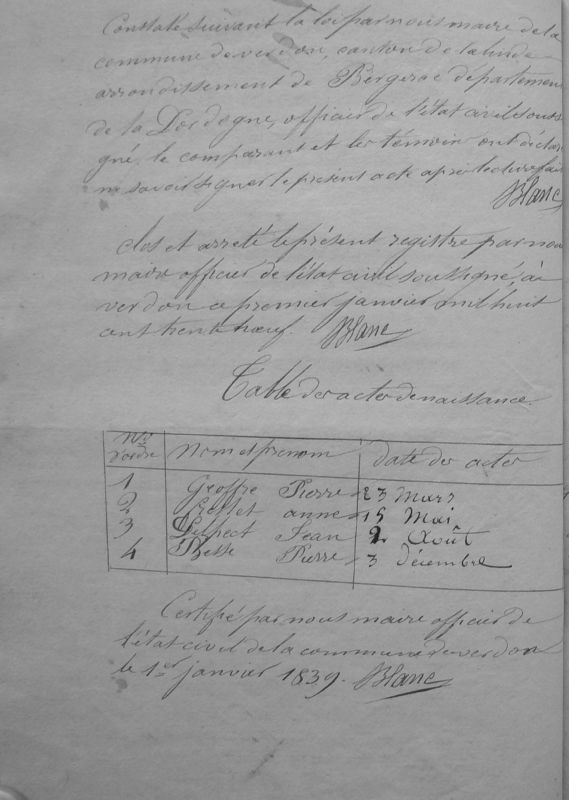 Constaté suivant la loi par nous maire de la
commune de verdon, canton de lalinde
arrondissement de Bergerac département
de la Dordogne, officier de l'état civil sous
gné. le comparant et les témoins ont déclar
ne savoir signer le présent acte après lecture fait
Blanc
clos et arrêté le présent registre par nous
maire officier de l'état civil soussigné, à
verdon ce premier janvier mil huit
cent trente neuf. Blanc
Table des actes de naissance.
Nos d'ordre nom et prénom date des actes
1 Geoffre Pierre 23 Mars
2 anne 15 Mai
3 Jean 2 Août
4 Besse Pierre 3 décembre
Certifié par nous maire officier de
l'état civil de la commune de verdon
le 1er janvier 1839. Blanc